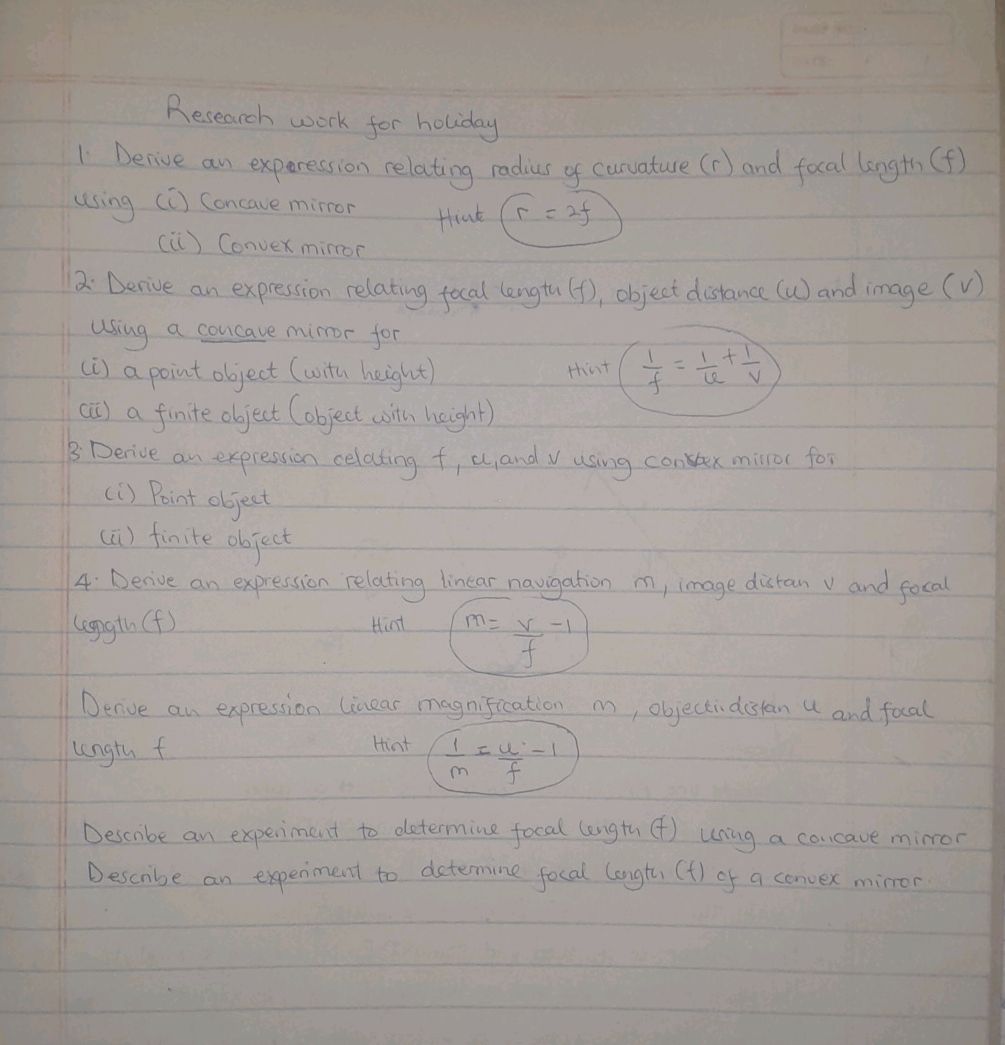 Research work for holiday
1. Derive an experession relating radius of curvature (r) and focal length (f)
using (i) Concave mirror Hint r = 2f
(ii) Convex mirror
2. Derive an expression relating focal length (f), object distance (u) and image (v)
using a concave mirror for
(i) a point object (with height) Hint 1/f = 1/u + 1/v
(ii) a finite object (object with height)
3. Derive an expression relating f, u, and v using convex mirror for
(i) Point object
(ii) finite object
4. Derive an expression relating linear navigation m, image distan v and focal
length (f) Hint m = v/f - 1
Derive an expression linear magnification m, object distan u and focal
length f Hint 1/m = u/f - 1
Describe an experiment to determine focal length (f) using a concave mirror
Describe an experiment to determine focal length (f) of a convex mirror.